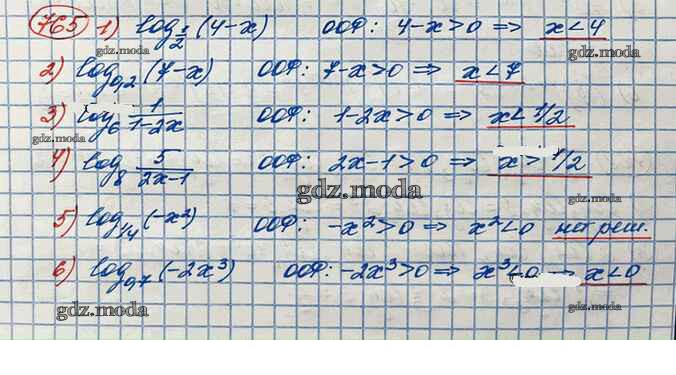 765 1) log 1/2 (4-x) ООФ: 4-x>0 => x<4
gdz.moda gdz.moda
2) log 0,2 (7-x) ООФ: 7-x>0 => x<7
3) log 6 1/(1-2x) ООФ: 1-2x>0 => x<1/2
gdz.moda gdz.moda
4) log 8 5/(2x-1) ООФ: 2x-1>0 => x>1/2
gdz.moda gdz.moda
5) log 1/4 (-x²) ООФ: -x²>0 => x²<0 нет реш.
gdz.moda
6) log 0,7 (-2x³) ООФ: -2x³>0 => x³<0 → x<0
gdz.moda gdz.moda